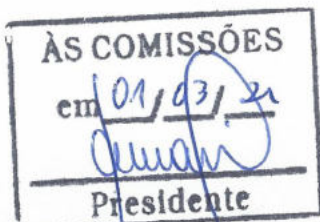 ÀS COMISSÕES
em 01/03/21
Presidente